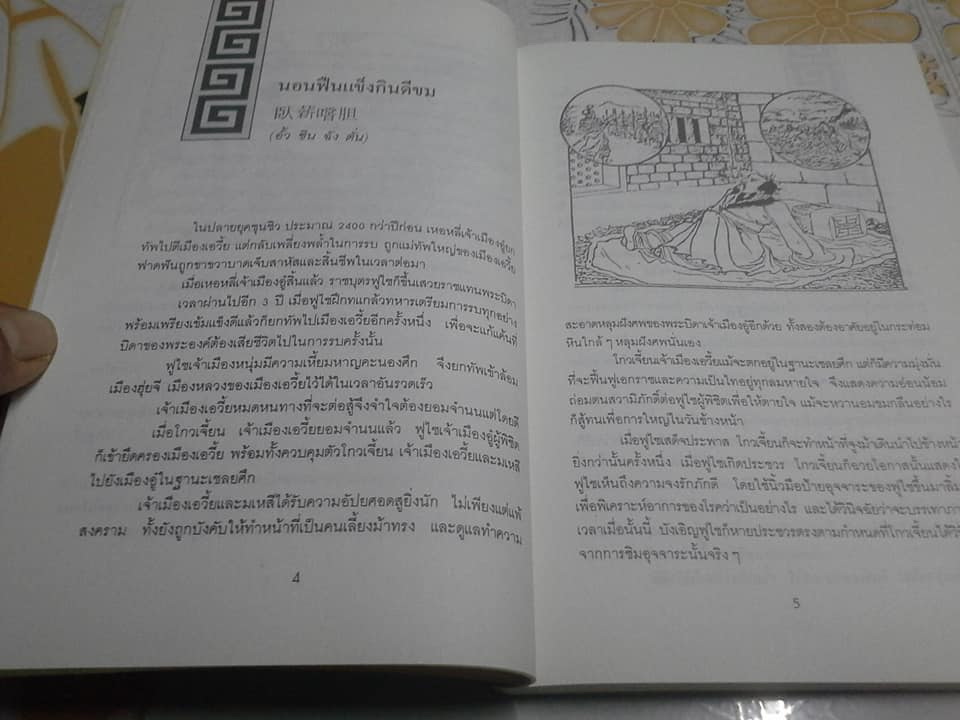 นอนฟืนแข็งกินดีขม
臥薪嚐胆
(อั้ว ซิน ฉัง ต่าน)
ในปลายยุคชุนชิว ประมาณ 2400 กว่าปีก่อน เหอหลี่เจ้าเมืองอู๋ยก
ทัพไปตีเมืองเอวี้ย แต่กลับเพลี่ยงพล้ำในการรบ ถูกแม่ทัพใหญ่ของเมืองเอวี้ย
ฟาดฟันถูกขาขวาบาดเจ็บสาหัสและสิ้นชีพในเวลาต่อมา
เมื่อเหอหลี่เจ้าเมืองอู๋สิ้นแล้ว ราชบุตรฟูไชก็ขึ้นเสวยราชแทนพระบิดา
เวลาผ่านไปอีก 3 ปี เมื่อฟูไชฝึกทแกล้วทหารเตรียมการรบทุกอย่าง
พร้อมเพรียงเข้มแข็งดีแล้วก็ยกทัพไปเมืองเอวี้ยอีกครั้งหนึ่ง เพื่อจะแก้แค้นที่
บิดาของพระองค์ต้องเสียชีวิตไปในการรบครั้งนั้น
ฟูไชเจ้าเมืองหนุ่มมีความเหี้ยมหาญคะนองศึก จึงยกทัพเข้าล้อม
เมืองฮุ่ยจี เมืองหลวงของเมืองเอวี้ยไว้ได้ในเวลาอันรวดเร็ว
เจ้าเมืองเอวี้ยหมดหนทางที่จะต่อสู้จึงจำใจต้องยอมจำนนแต่โดยดี
เมื่อโกวเจี้ยน เจ้าเมืองเอวี้ยยอมจำนนแล้ว ฟูไชเจ้าเมืองอู๋ผู้พิชิต
ก็เข้ายึดครองเมืองเอวี้ย พร้อมทั้งควบคุมตัวโกวเจี้ยน เจ้าเมืองเอวี้ยและมเหสี
ไปยังเมืองอู๋ในฐานะเชลยศึก
เจ้าเมืองเอวี้ยและมเหสีได้รับความอัปยศอดสูยิ่งนัก ไม่เพียงแต่แพ้
สงคราม ทั้งยังถูกบังคับให้ทำหน้าที่เป็นคนเลี้ยงม้าทรง และดูแลทำความ
4
สะอาดหลุมฝังศพของพระบิดาเจ้าเมืองอู๋อีกด้วย ทั้งสองต้องอาศัยอยู่ในกระท่อม
หินใกล้ ๆ หลุมฝังศพนั่นเอง
โกวเจี้ยนเจ้าเมืองเอวี้ยแม้จะตกอยู่ในฐานะเชลยศึก แต่ก็มีความมุ่งมั่น
ที่จะฟื้นฟูเอกราชและความเป็นไทอยู่ทุกลมหายใจ จึงแสดงความอ่อนน้อม
ถ่อมตนสวามิภักดิ์ต่อฟูไชผู้พิชิตเพื่อให้ตายใจ แม้จะหวานอมขมกลืนอย่างไร
ก็สู้ทนเพื่อการใหญ่ในวันข้างหน้า
เมื่อฟูไชเสด็จประพาส โกวเจี้ยนก็จะทำหน้าที่จูงม้าเดินนำไปข้างหน้า
ยิ่งกว่านั้นครั้งหนึ่ง เมื่อฟูไชเกิดประชวร โกวเจี้ยนก็ฉวยโอกาสนั้นแสดงให้
ฟูไชเห็นถึงความจงรักภักดี โดยใช้นิ้วมือป้ายอุจจาระของฟูไชขึ้นมาลิ้ม
เพื่อพิเคราะห์อาการของโรคว่าเป็นอย่างไร และได้วินิจฉัยว่าจะบรรเทาภาย
เวลาเมื่อนั้นนี้ บังเอิญฟูไชก็หายประชวรตรงตามกำหนดที่โกวเจี้ยนได้วินิ
จากการชิมอุจจาระนั้นจริง ๆ
5